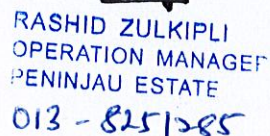 RASHID ZULKIPLI
OPERATION MANAGER
PENINJAU ESTATE
013 - 8251285